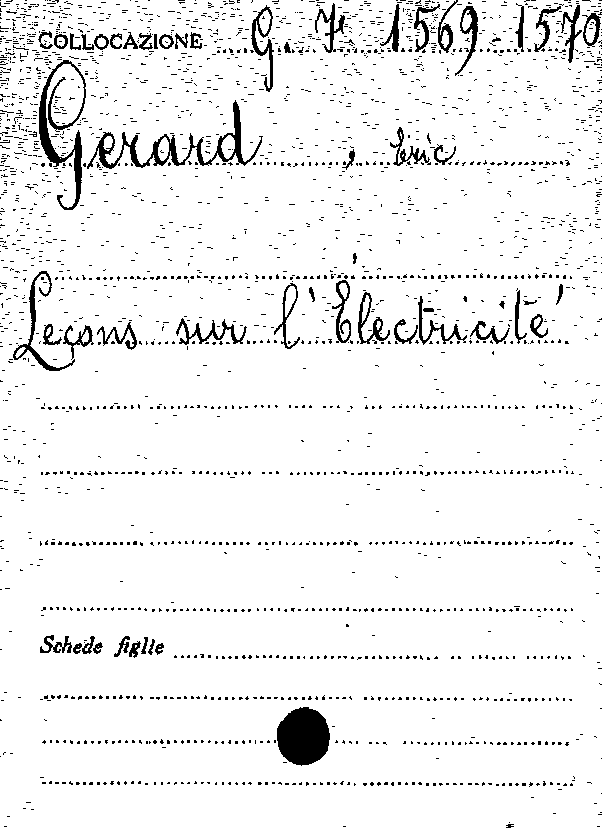 COLLOCAZIONE G. F 1569-1570
Gerard, Eric
Leçons sur l'Électricité
Schede figlie